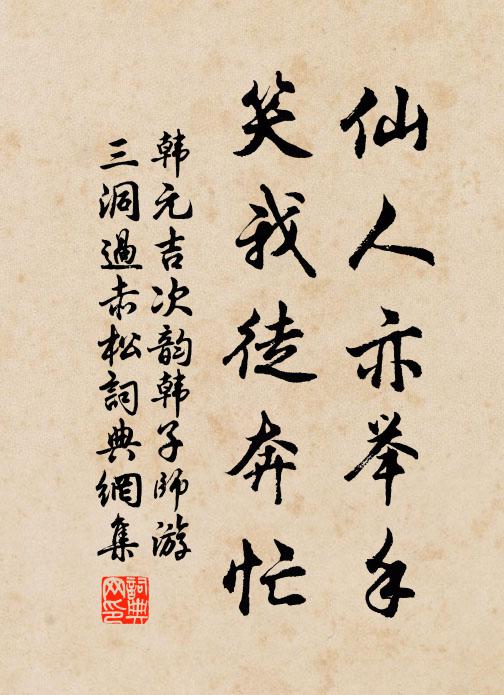 仙人亦举手
笑我徒奔忙
韩元吉次韵韩子师游
三洞過赤松詞典網集
詞典
网印